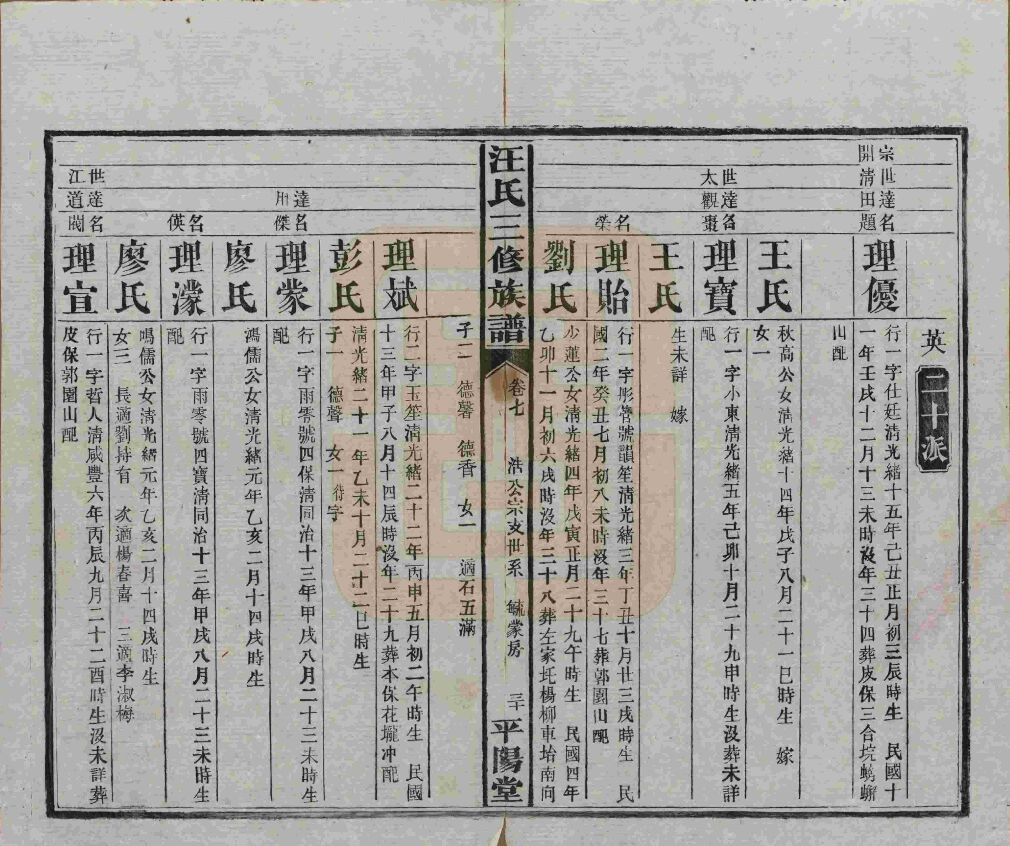 英
二十派
宗世達名
開清田題
理優
行一字仕廷清光緒十五年己丑正月初三辰時生　民國十
一年壬戌十二月十三未時沒年三十四葬皮保三合垸螃蠏
山配
王氏
秋高公女清光緒十四年戊子八月二十一巳時生　嫁
女一
世達名
太觀棗
理寶
行一字小東清光緒五年己卯十月二十九申時生沒葬未詳
配
王氏
生未詳　嫁
名榮
理貽
行一字彤管號韻笙清光緒三年丁丑十月廿三戌時生　民
國二年癸丑七月初八未時沒年三十七葬郭園山配
劉氏
少蓮公女清光緒四年戊寅正月二十九午時生　民國四年
乙卯十一月初六戌時沒年三十八葬左家坵楊柳車坮南向
汪氏三修族譜
卷七
浩公宗支世系　毓蒙房
三十
平陽堂
子二　德馨　德香　女一　適石五滿
理斌
行二字玉笙清光緒二十二年丙申五月初二午時生　民國
十三年甲子八月十四辰時沒年二十九葬本保花壠冲配
彭氏
清光緒二十一年乙未十月二十二巳時生
子一　德聲　女一待字
達名
傑
理蒙
行一字雨零號四保清同治十三年甲戌八月二十三未時生
配
廖氏
鴻儒公女清光緒元年乙亥二月十四戌時生
名僙
理濛
行一字雨零號四寶清同治十三年甲戌八月二十三未時生
配
廖氏
鳴儒公女清光緒元年乙亥二月十四戌時生
女三　長適劉持有　次適楊春喜　三適李淑梅
世達名
江道閥
理宣
行一字哲人清咸豐六年丙辰九月二十二酉時生沒未詳葬
皮保郭園山配